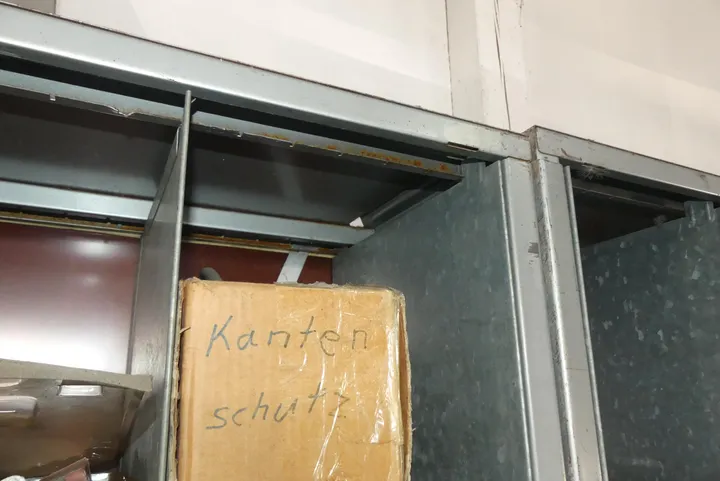 Kanten
schutz